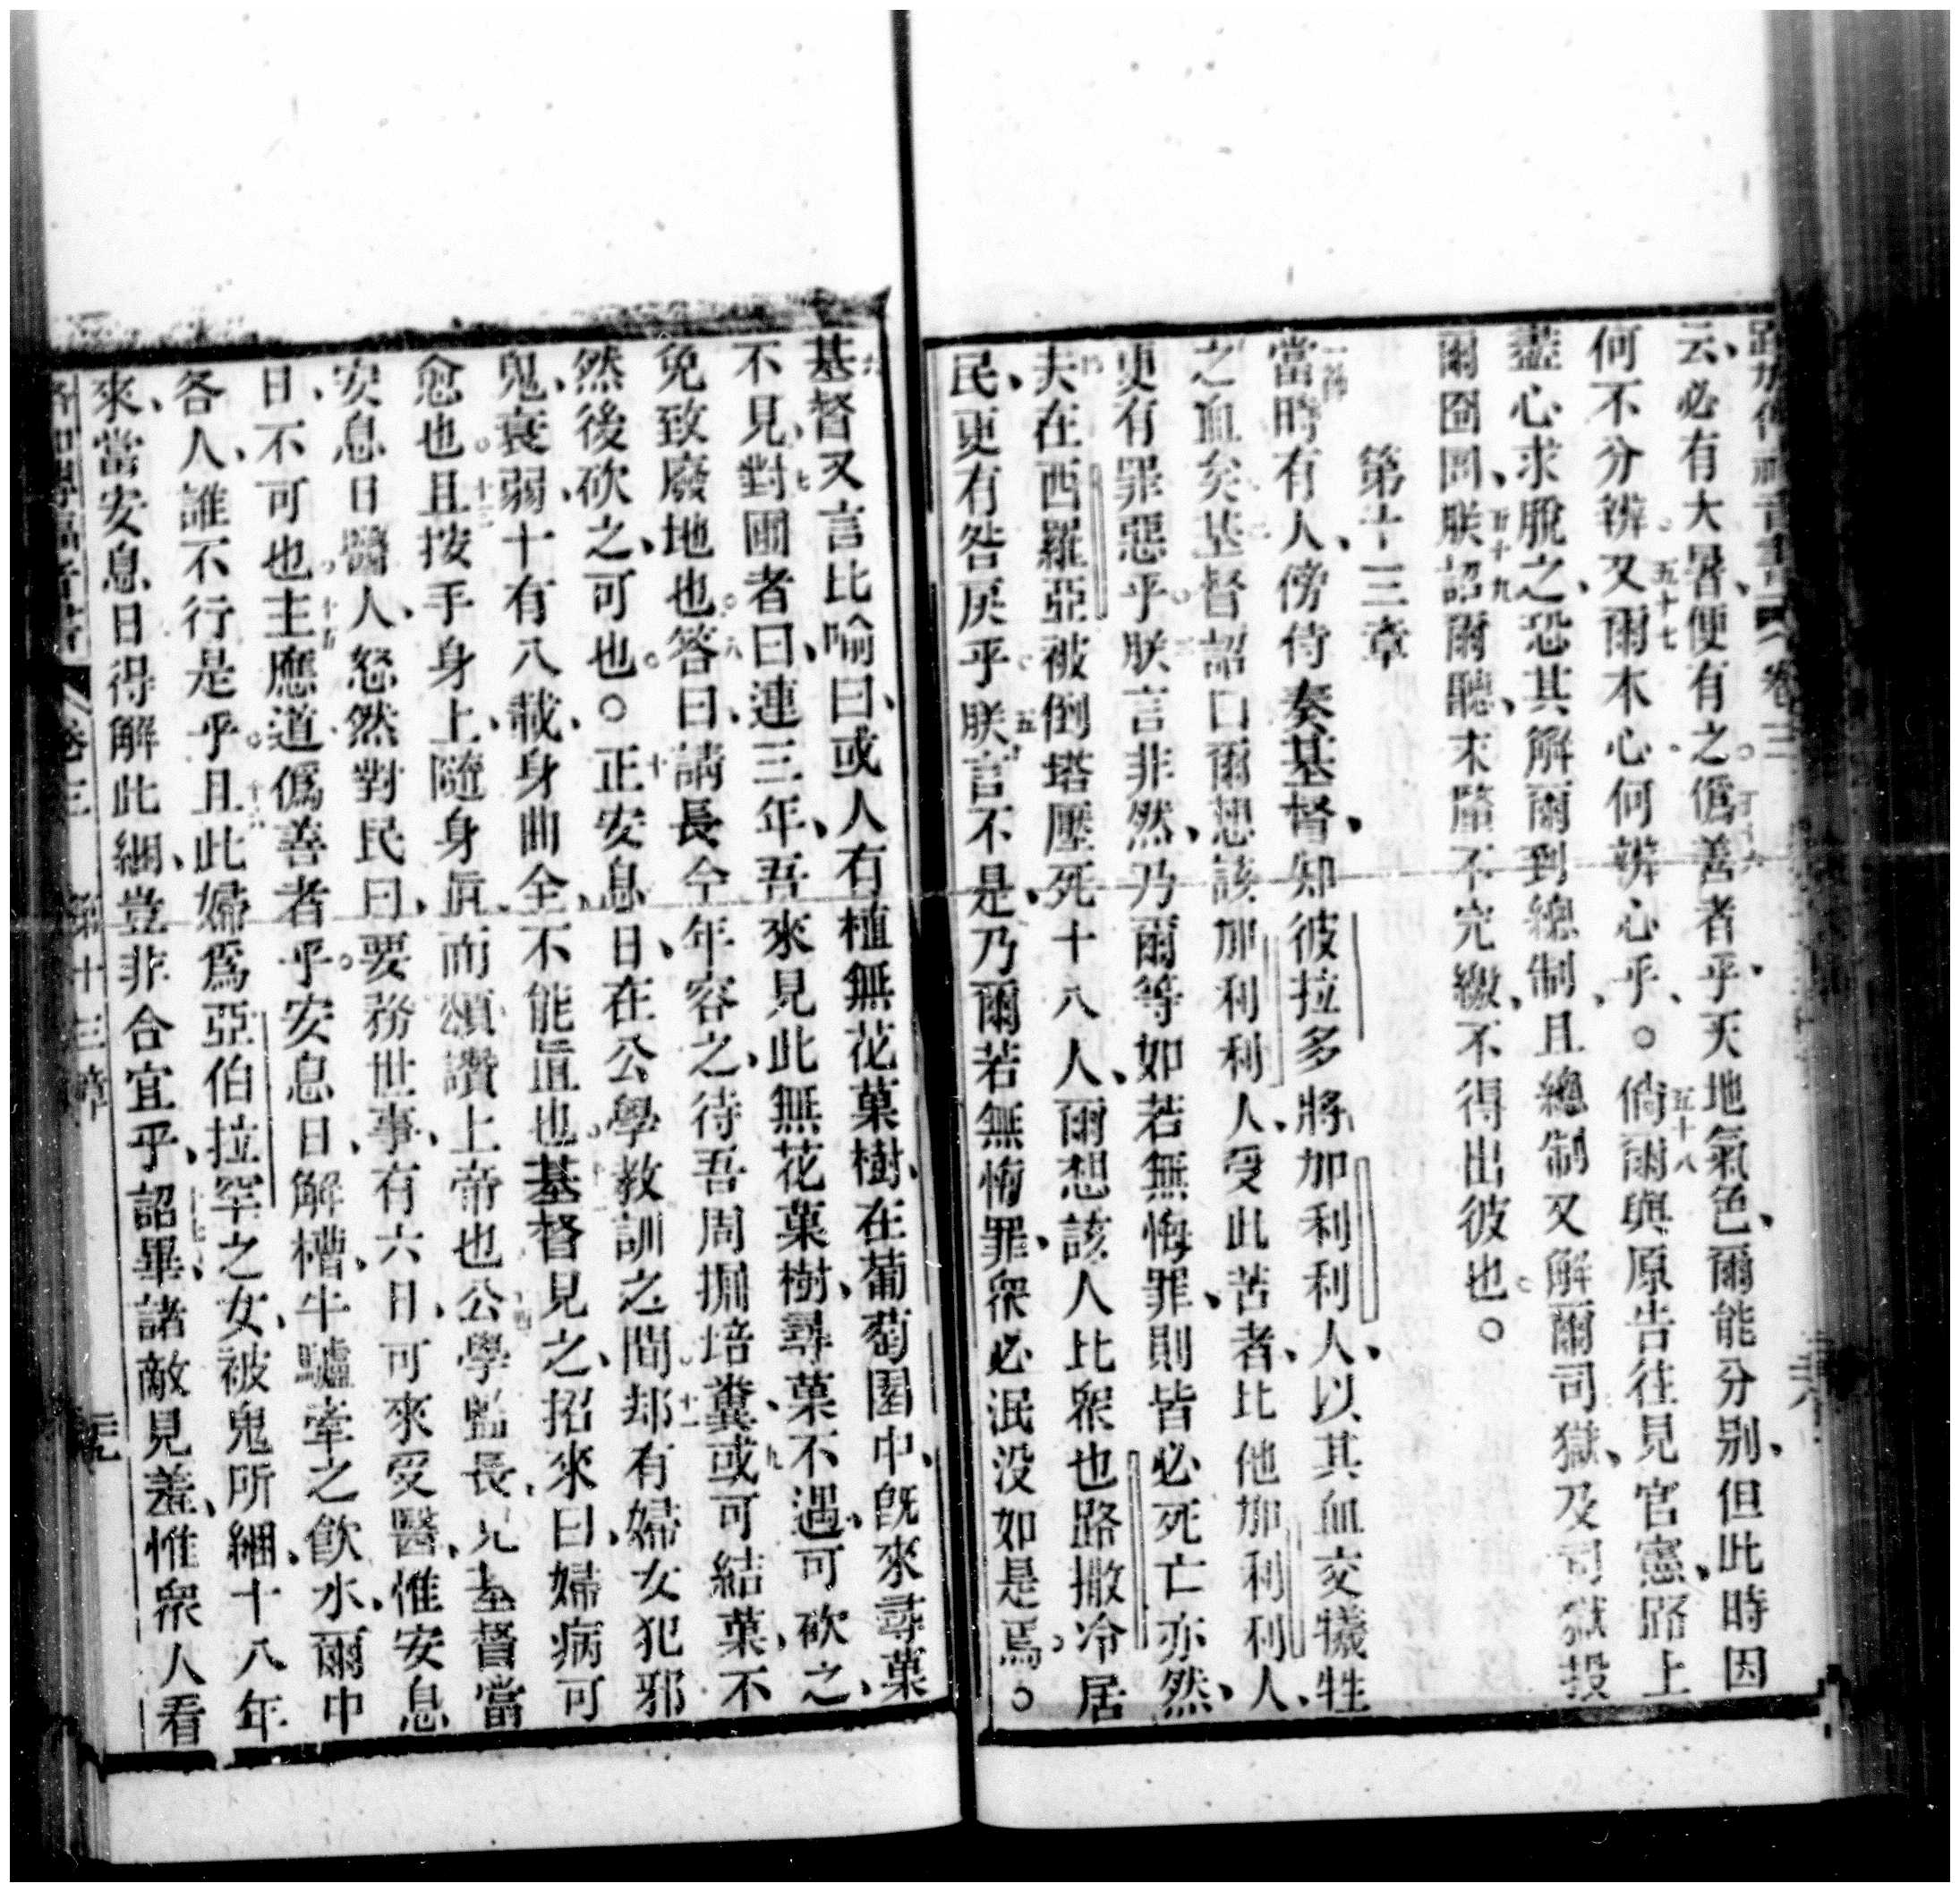 路加傳福音書 卷三
云必有大暑便有之僞善者乎天地氣色爾能分别但此時因
何不分辨又爾木心何辨心乎○倘爾與原告往見官憲路上
盡心求脫之恐其解爾到總制且總制又解爾司獄及司獄投
爾囹圄朕詔爾聽末釐不完繳不得出彼也○
第十三章
當時有人傍侍奏基督知彼拉多將加利利人以其血交犧牲
之血矣基督詔曰爾想該加利利人受此苦者比他加利利人
更有罪惡乎朕言非然乃爾等如若無悔罪則皆必死亡亦然
夫在西羅亞被倒塔壓死十八人爾想該人比衆也路撒冷居
民更有咎戾乎朕言不是乃爾若無悔罪衆必泯没如是焉○
基督又言比喻曰或人有植無花菓樹在葡萄園中旣來尋菓
不見對圃者曰連三年吾來見此無花菓樹尋菓不遇可砍之
免致廢地也答曰請長今年容之待吾周掘培糞或可結菓不
然後砍之可也○正安息日在公學教訓之間却有婦女犯邪
鬼衰弱十有八載身曲全不能直也基督見之招來曰婦病可
愈也且按手身上隨身直而頌讚上帝也公學監長見基督當
安息日醫人怒然對民曰要務世事有六日可來受醫惟安息
日不可也主應道僞善者乎安息日解槽牛驢牽之飲水爾中
各人誰不行是乎且此婦爲亞伯拉罕之女被鬼所綑十八年
來當安息日得解此綑豈非合宜乎詔畢諸敵見羞惟衆人看
卷三 第十三章